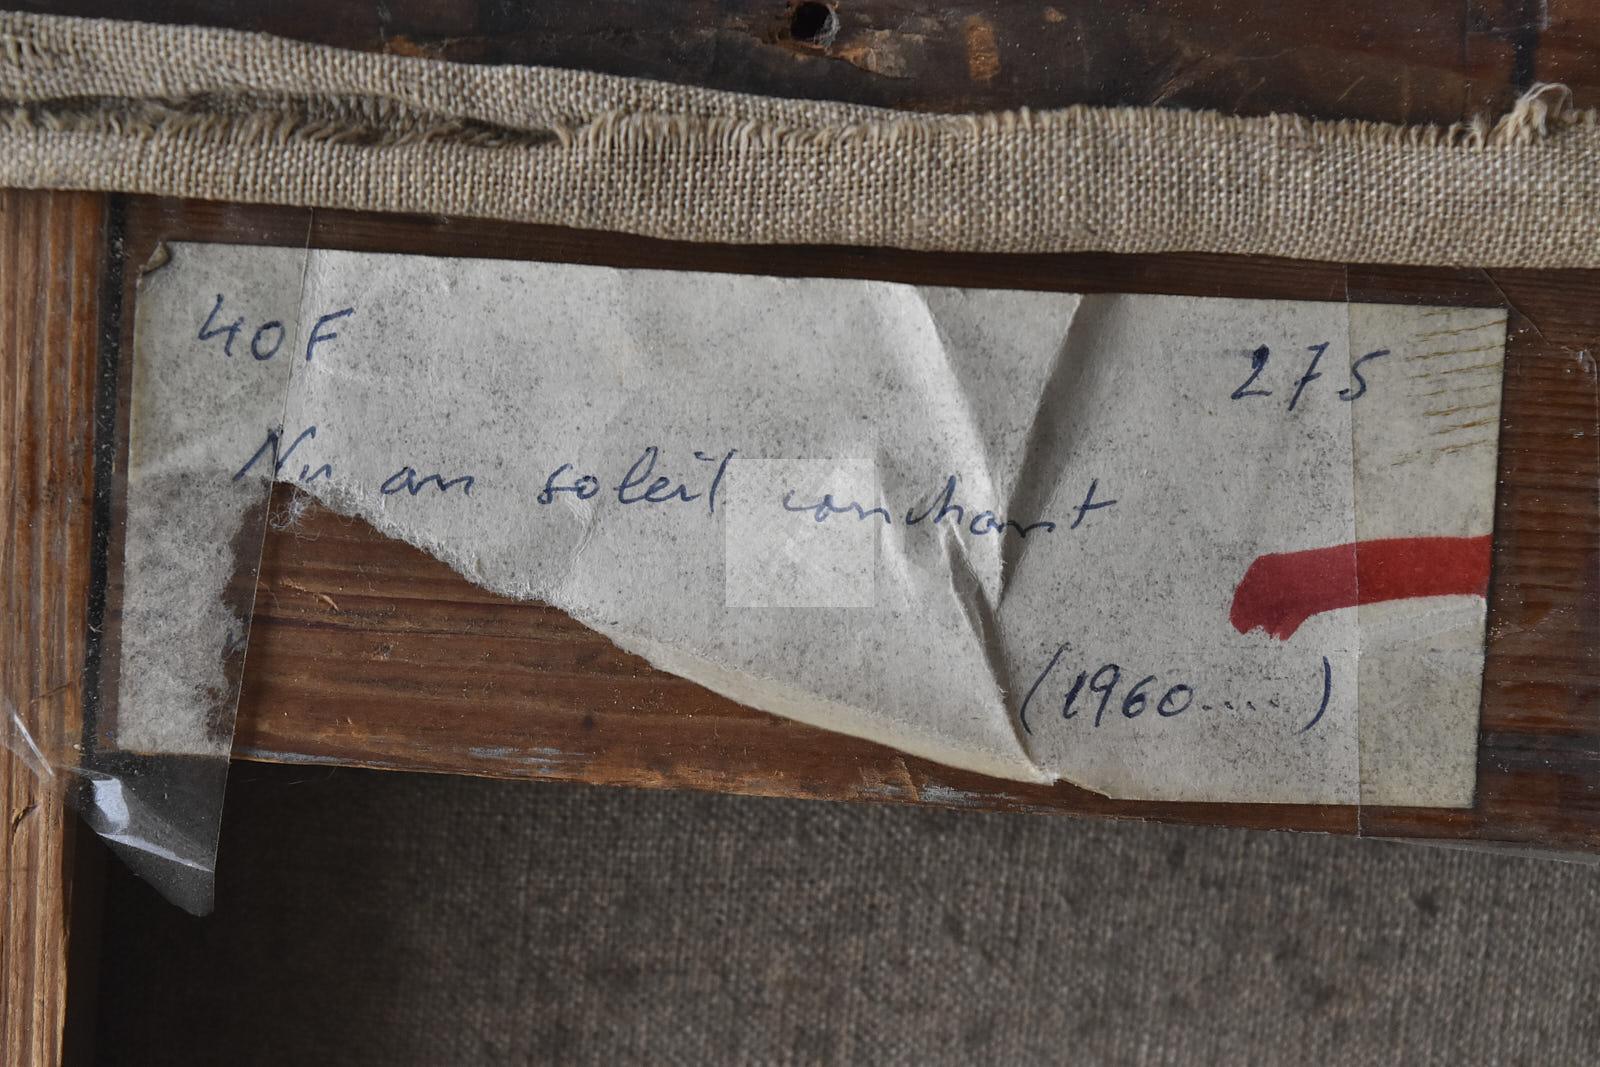 40F 275
Nu au soleil couchant
(1960....)